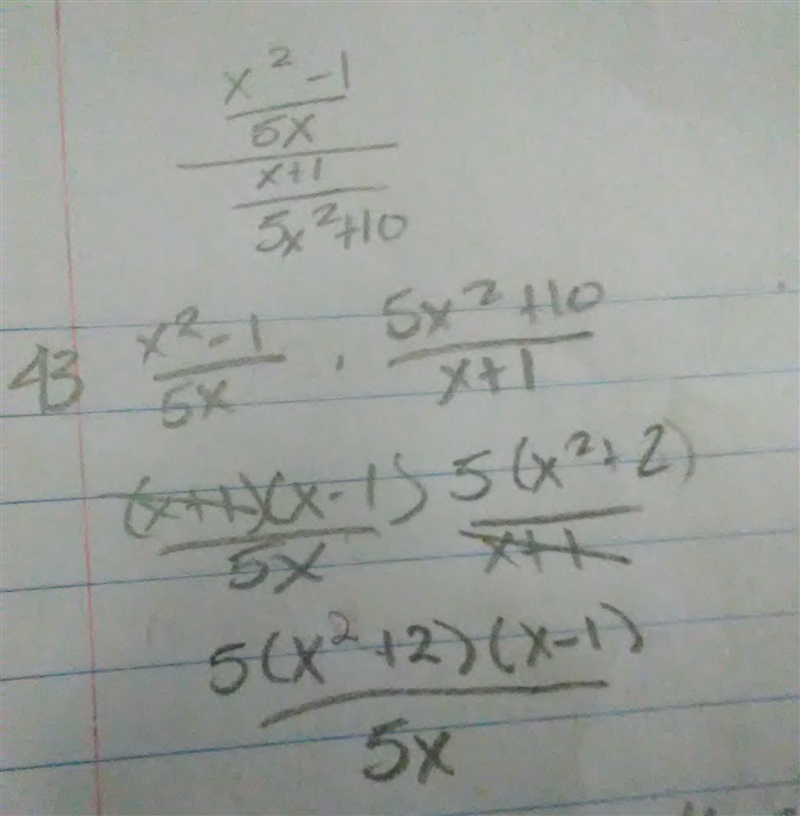 x² - 1
5x
x+1
5x²+10
43 x² - 1 / 5x · 5x² + 10 / x+1
(x+1)(x-1) / 5x 5(x²+2) / x+1
5(x²+2)(x-1)
5x